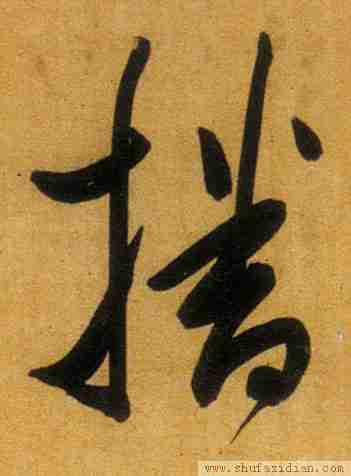 播
www.shufazidian.com